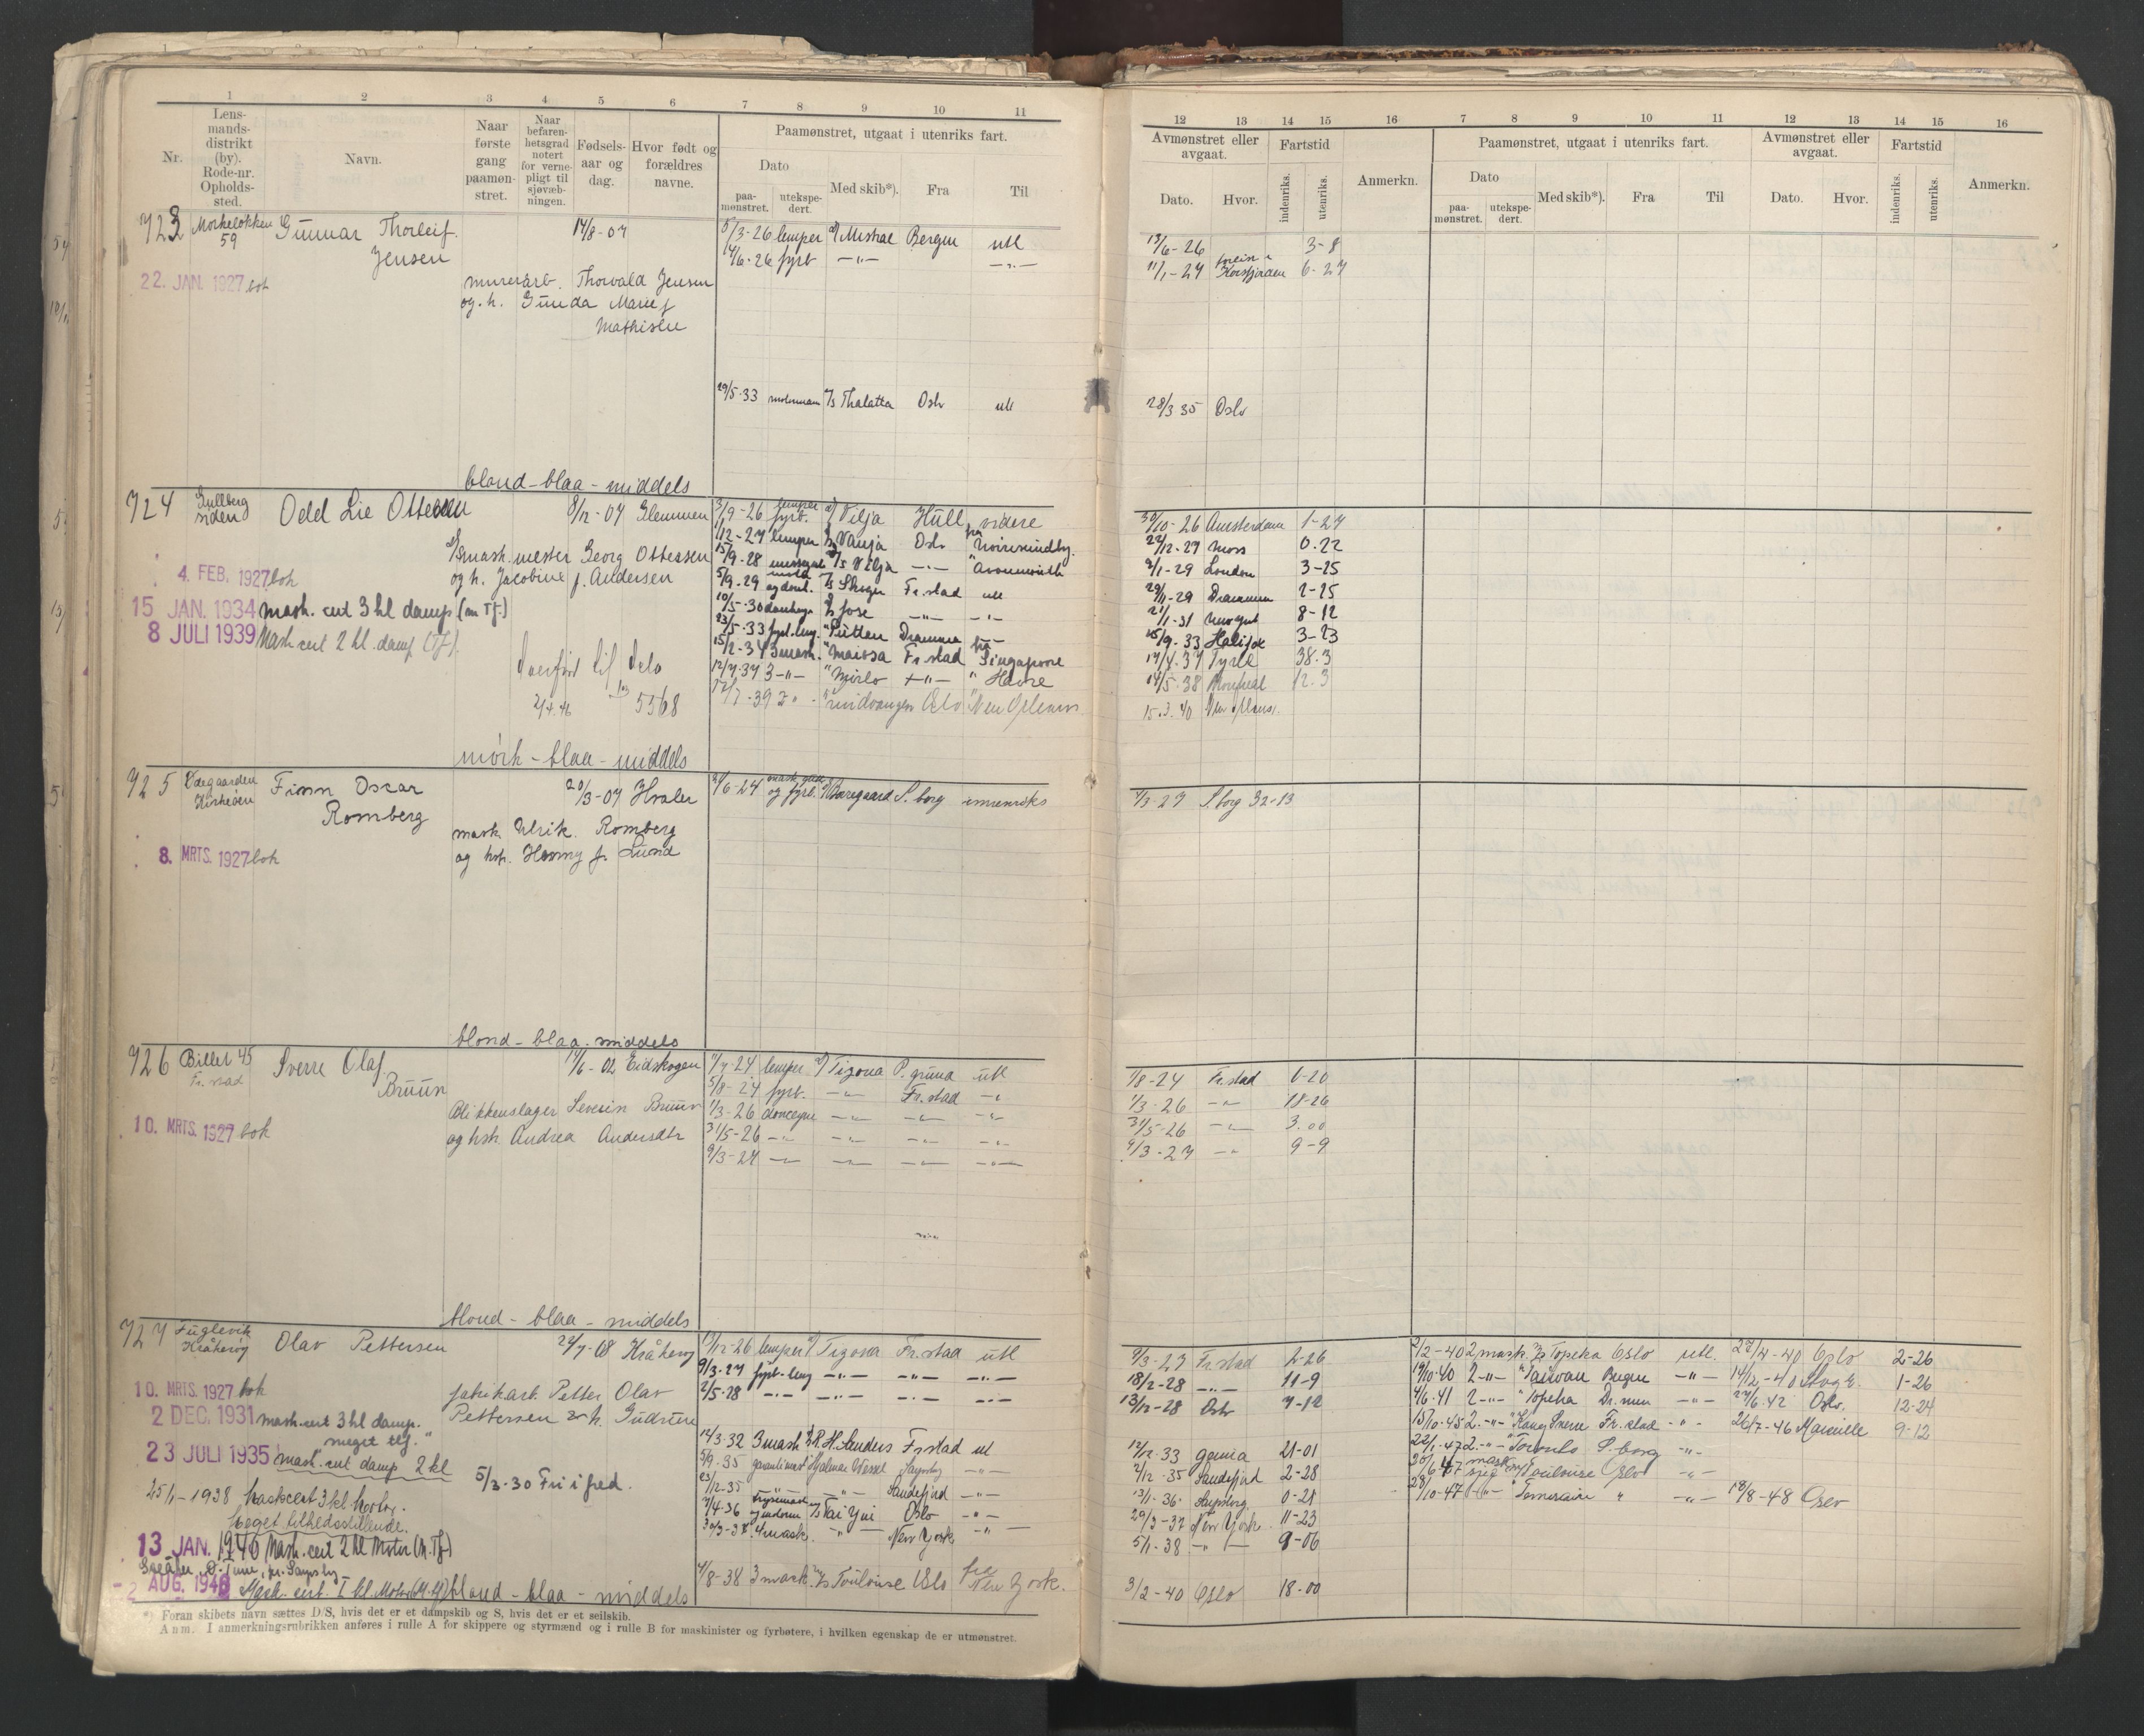 1 2 3 4 5 6 7 8 9 10 11
Nr.
Lens-
mands-
distrikt
(by).
Rode-nr.
Opholds-
sted.
Navn.
Naar
første
gang
paamøn-
stret.
Naar
befaren-
hetsgrad
notert
for verne-
pligt til
sjøvæb-
ningen.
Fødsels-
aar og
dag.
Hvor født og
forældres
navne.
Paamønstret, utgaat i utenriks fart.
Dato
paa-
mønstret.
utekspe-
dert.
Med skib*).
Fra
Til
723 59 Gunnar Thorleif 14/8-07 5/3-26 lemper Mistral Bergen utl
Jensen 14/6-26 fyrb -"- -"-
22. JAN. 1927 bok murerarb. Thorvald Jensen
og h. Gunda Marie f
Mathisen
29/5-33 Thalatta Oslo utl
blond - blaa - middels
724 Gullberg
siden
Odd Lie Ottesen 8/12-07 Glemmen 3/9-26 lemper
fyrb. Vilja Hull videre
1/12-27 lemper Vanja Oslo fra
mask.mester Georg Ottessen 15/9-28 Vilja -"- " Avonmouth
4. FEB. 1927 bok og h. Jacobine f. Andersen 5/9-29 Skogen Fr.stad utl
15 JAN. 1934 mask. cert 3 kl damp (m Tf.) 10/5-30 Jose -"- -"-
8 JULI 1939 Mask cert 2 kl. damp (Tf). 23/5-33 " Sutten Drammen -"-
15/2-34 3mask. " Maissa Fr stad fra Singapoore
Overført til Oslo 12/7.37 3-"- " Mirlo -"- " Havre
2/4.46 5568 39 2" - Oslo " New Orleans
mörk - blaa - middels
725 Finn Oscar 20/3-07 Hvaler 2/6-24 og fyrb. Borregaard S.borg innenriks
Romberg
mask. Ulrik. Romberg
8. MRTS. 1927 bok og hst. Hanny f. Lund
blond - blaa - middels
726 Billet 45 Sverre Olaf. 14/6-02 Eidskogen 1/7-24 lemper Tizona P.gruna utl
Fr.stad Bruun 5/8-24 fyrb. -"- Fr.stad -"-
Blikkenslager Severin Bruun 1/3-26 -"- -"- -"-
10. MRTS. 1927 bok og hst. Andrea Andersdtr 31/5-26 -"- -"- -"- -"-
9/3-27 -"- -"- -"- -"-
blond - blaa - middels
727 Fuglevik
Kråkerøy
Olav Pettersen 22/7-08 Kråkerøy 17/12-26 lemper Tizona Fr.stad utl
9/3-27 fyrb-lemp -"- -"- -"-
10. MRTS. 1927 bok fabrikarb. Petter Olav 2/5-28 -"- -"- -"- -"-
2 DEC. 1931 mask.cert 3 kl damp. Pettersen & h. Gudrun
"meget tlf." 12/3-32 3mask R.H. Sanders Fr stad utl
23 JULI 1935 mask. cert damp 2 kl 5/3-30 Fri i fred. 5/9-35 Hjalmar Wessel -"-
23/12-35 -"- Sandefjord -"-
25/1-1938 Maskcert 3 kl Motor. 7/4-36 Tai Yin Oslo -"-
Meget tilfredsstillende. 30/3-37 4mask. -"- New York -"-
13 JAN. 1940 Mask. cert 2 kl Motor (M.Tf)
- 2 AUG. 1946 Mask. cert. I kl. Motor (M.tf) blond - blaa - middels 4/8-38 3 mask. Toulouse Oslo fra
New York.
*) Foran skibets navn sættes D/S, hvis det er et dampskib og S, hvis det er et seilskib.
Anm. I anmerkningsrubrikken anføres i rulle A for skippere og styrmænd og i rulle B for maskinister og fyrbøtere, i hvilken egenskap de er utmønstret.
12 13 14 15 16 7 8 9 10 11 12 13 14 15 16
Avmønstret eller
avgaat.
Dato.
Hvor.
Fartstid
indenriks.
utenriks.
Anmerkn.
Paamønstret, utgaat i utenriks fart.
Dato
paa-
mønstret.
utekspe-
dert.
Med skib*).
Fra
Til
Avmønstret eller
avgaat.
Dato.
Hvor.
Fartstid
indenriks.
utenriks.
Anmerkn.
13/6-26 3-8
11/1-27 Korsfjorden 6-27
28/3 35 Oslo
30/10-26 Amsterdam 1-27
22/12-27 Moss 0.22
9/1-29 London 3-25
29/11-29 Drammen 2-25
21/1-31 8-12
15/9-33 Halifax 3-23
14/4.37 Tyne 38.3
14/5-38 Montreal 12.3
15.3.40 New Orleans.
4/3-27 S.borg 32-13
1/8-24 Fr.stad 1-20
1/3-26 -"- 18-26
31/5-26 -"- 3.00
9/3-27 -"- 9-9
9/3-27 Fr.stad 2-26 2/2-40 2 mask. Topeka Oslo utl. 27/4-40 Oslo 2-26
18/2-28 -"- 11-9 19/10-40 2-"- Taiwan Bergen -"- 14/12-40 1-26
13/12-28 Oslo 7-12 4/6.41 2-"- " Topeka Dr.men -"- 27/6.42 Oslo. 12-24
15/10-45 2.-"- " Kong Sverre Fr.stad -"- 26/7-46 Marseille 9-12
12/12-33 21-01 22/1-47 2.-"- " Toronto S.borg -"-
2/12-35 Sandefjord 2-28 20/6-47 Toulouse Oslo -"-
13/1-36 Sarpsborg 0-21 28/10-47 -"- " Temeraire " -"- 18/8-48 Oslo
29/3-37 New York 11-23
5/1-38 -"- 9-06
3/2-40 Oslo 18-00